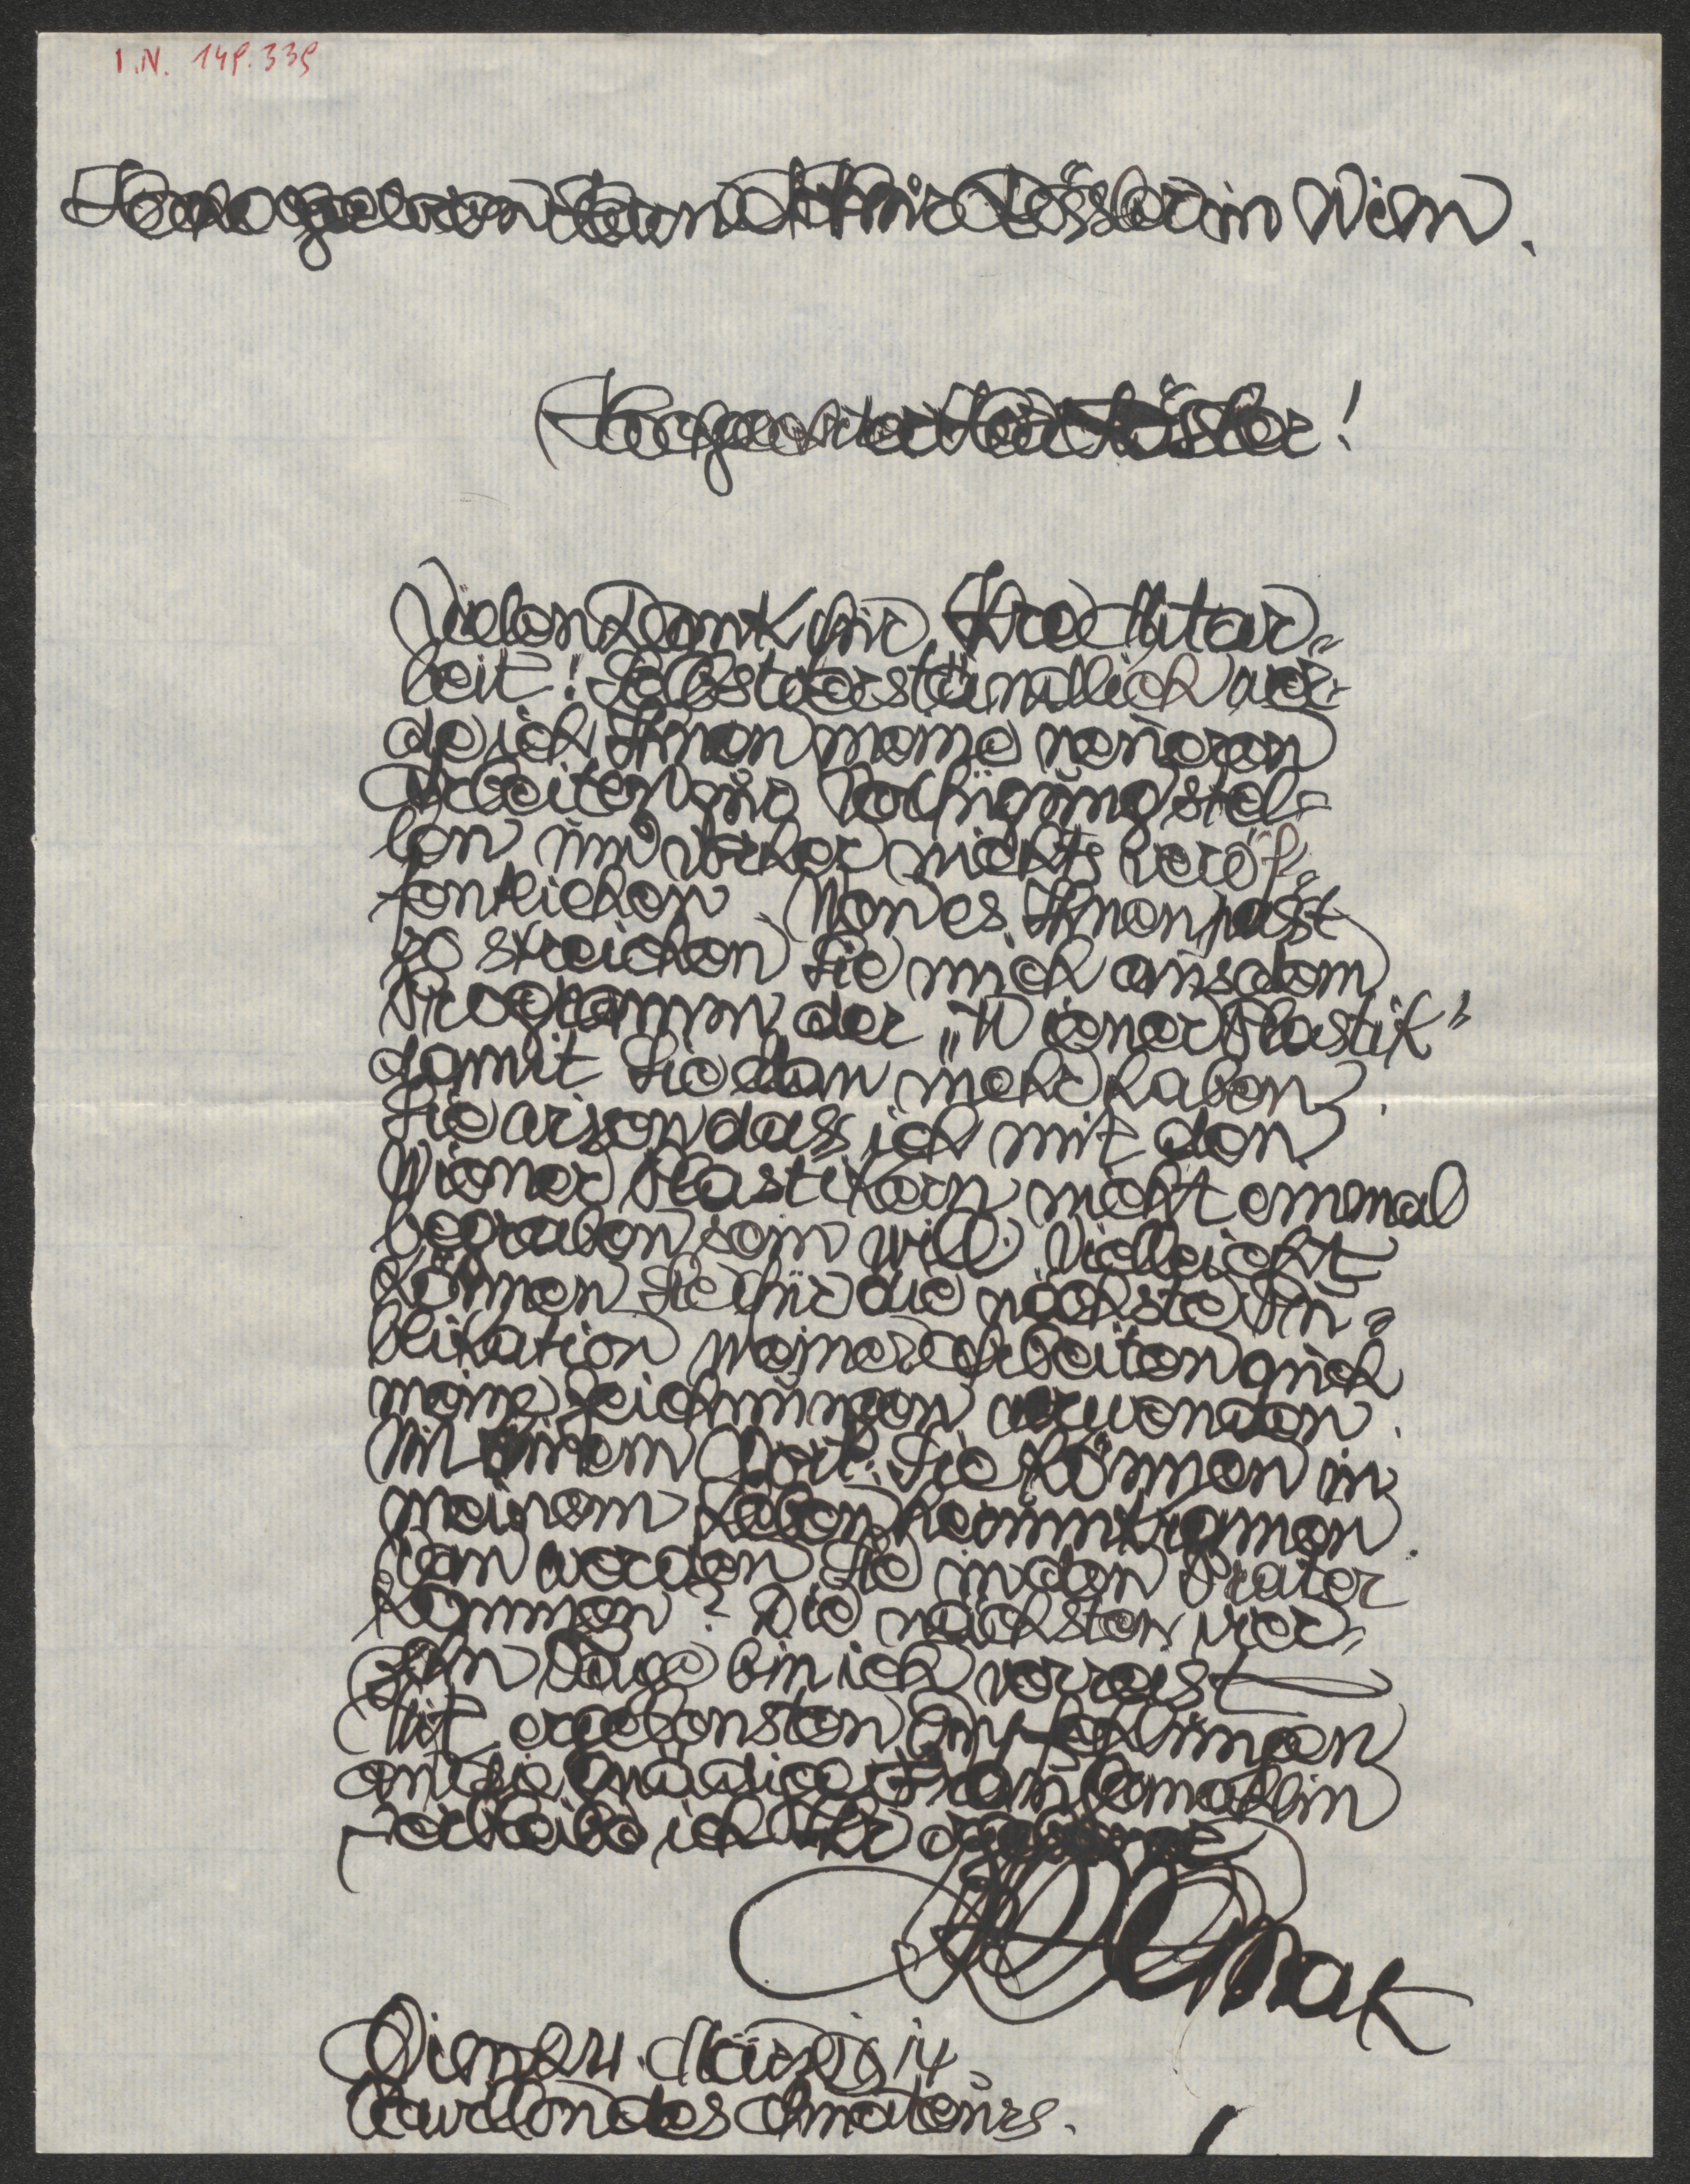 I.N. 149.339
Hochgeboren Herrn Arthur Rössler in Wien.
Sehr geehrter Herr Rössler!
Vielen Dank für Ihre Mitar=
beit! Selbstverständlich wer=
de ich Ihnen meine neueren
Arbeiten zur Verfügung stel=
len und vorher nichts veröf=
fentlichen. Wen es Ihnen passt
so streichen Sie mich aus dem
Programm der „Wiener Plastik"
damit Sie dan mehr haben.
Sie wissen dass ich mit den
Wiener Plastikern nicht einmal
begraben sein will. Vielleicht
können Sie für die nächste Pu=
blikation meiner Arbeiten auch
meine Zeichnungen verwenden.
Mit einem Wort: Sie können in
meinem Leben herumkramen.
Wan werden Sie in den Prater
kommen? Die nächsten vier=
zehn Tage bin ich verreist
Mit ergebensten Empfehlungen
an die Gnädige Frau Gemahlin
verbleibe ich Ihr ergebener
Hanak
Wien 24. März 14.
Pavillon des Amateurs.